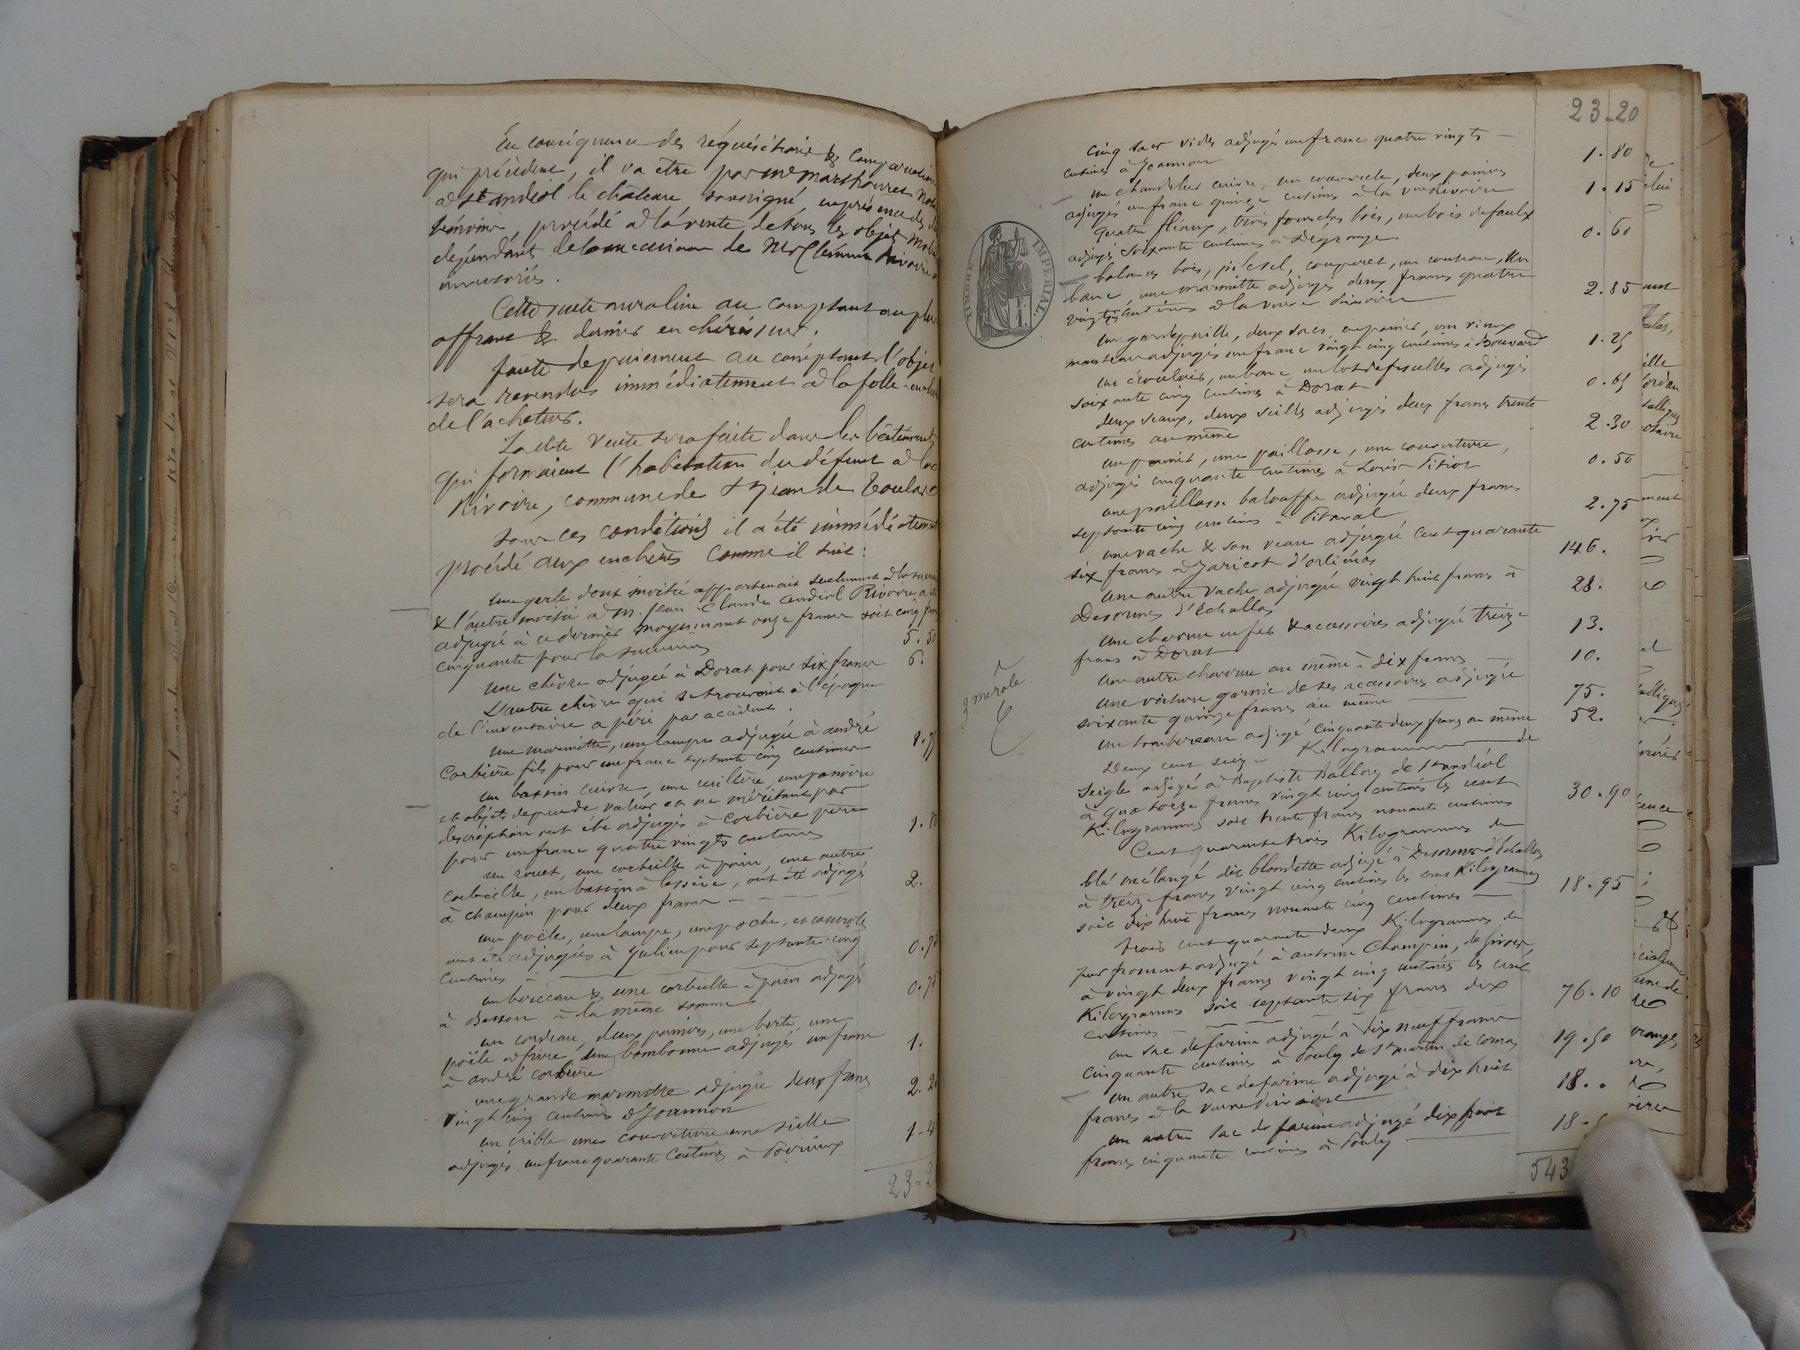 En conséquence des réquisitions & comparutions
qui précèdent, il va être par me
a St andéol le château soussigné, en présence des
témoins, procédé à la vente de tous les objets
dépendants de la succession de Mr Clément Rivoire
inventoriés.
Cette vente aura lieu au comptant au plus
offrant & dernier enchérisseur.
faute de paiement au comptant l'objet
sera revendus immédiatement à la folle
de l'acheteur.
La dite vente sera faite dans les bâtiments
qui formaient l'habitation du défunt à la
Rivoire, commune de St Jean de Toulas
Sous ces conditions il a été immédiatement
procédé aux enchères comme il suit :
une gerle dont moitié appartenait seulement à la
& l'autre moitié à M. Jean Claude andéol Rivoire a été
adjugée à ce dernier moyennant onze francs soit cinq
cinquante pour la succession 5.50
une chèvre adjugée à Dorat pour six francs 6.
L'autre chèvre qui se trouvait à l'époque
de l'inventaire a péri par accident.
une marmitte, une lampe adjugée à andré
Corbière fils pour un franc septante cinq centimes 1.7
un bassin cuivre, une cuillère, une passoire
et objets de peu de valeur et ne méritant pas
description ont été adjugés à Corbière père
pour un franc quatre vingts centimes 1.8
un rouet, une corbeille à pain, une autre
corbeille, un bassin à lessive, ont été adjugés
à champin pour deux francs 2.
un poële, une lampe, une poche, et casserole
ont été adjugés à Julien pour septante cinq
centimes 0.7
un berceau & une corbeille à pain adjugés
à Besson à la même somme 0.7
un cordeau, deux paniers, une berte, une
poële à frire, une bombonne adjugés un franc
à andré corbière 1.
une grande marmitte adjugée deux francs
vingt cinq centimes à Joannon 2.2
un crible une couverture une seille
adjugés un franc quarante centimes à Poirieux 1.4
23.2
23.20
cinq sacs vides adjugés un franc quatre vingts
centimes à Joannon 1.80
un chandelier cuivre, un couvercle, deux paniers
adjugés un franc quinze centimes à la veuve Rivoire 1.15
quatre fléaux, trois fourches bois, un bois de faulx
adjugés soixante centimes à Degrange 0.60
balances bois, pile sel, couperet, un couteau, un
banc, une marmitte adjugés deux francs quatre
vingts centimes à la veuve Rivoire 2.85
une gardepaille, deux sacs, un panier, un vieux
manteau adjugés un franc vingt cinq centimes à Bouvard 1.25
un banc, un lot de fuselles adjugés
soixante cinq centimes à Dorat 0.65
deux seaux, deux seilles adjugés deux francs trente
centimes au même 2.30
un panier, une paillasse, une couverture,
adjugés cinquante centimes à Louis Pitiot 0.50
une paillasse balouffe adjugée deux francs
septante cinq centimes à Pitaval 2.75
une vache & son veau adjugé cent quarante
six francs à Jaricot d'orliénas 146.
une autre vache adjugée vingt huit francs à
Desormes d'Echallas 28.
une charrue en fer & accessoires adjugée treize
francs à Dorat 13.
une autre charrue au même à dix francs 10.
une voiture garnie de ses accessoires adjugée
soixante quinze francs au même 75.
un tombereau adjugé cinquante deux francs au même 52.
Deux cent seize Kilogrammes de
seigle adjugé à Baptiste Ballory de St andéol
à quatorze francs vingt cinq centimes les cent
Kilogrammes soit trente francs nonante centimes 30.90
Cent quarante trois Kilogrammes de
blé mélangé dit blondette adjugé à Desormes d'Echallas
à treize francs vingt cinq centimes les cent Kilogrammes
soit dix huit francs nonante cinq centimes 18.95
trois cent quarante deux Kilogrammes de
pur froment adjugé à antoine Champin, de Givors,
à vingt deux francs vingt cinq centimes les cent
Kilogrammes soit septante six francs dix
centimes 76.10
un sac de farine adjugé à dix neuf francs
cinquante centimes à Pouly de St martin de cornas 19.50
un autre sac de farine adjugé à dix huit
francs à la veuve Rivoire 18.
un autre sac de farine adjugé dix huit
francs cinquante centimes à Pouly 18.
543
TIMBRE IMPERIAL.